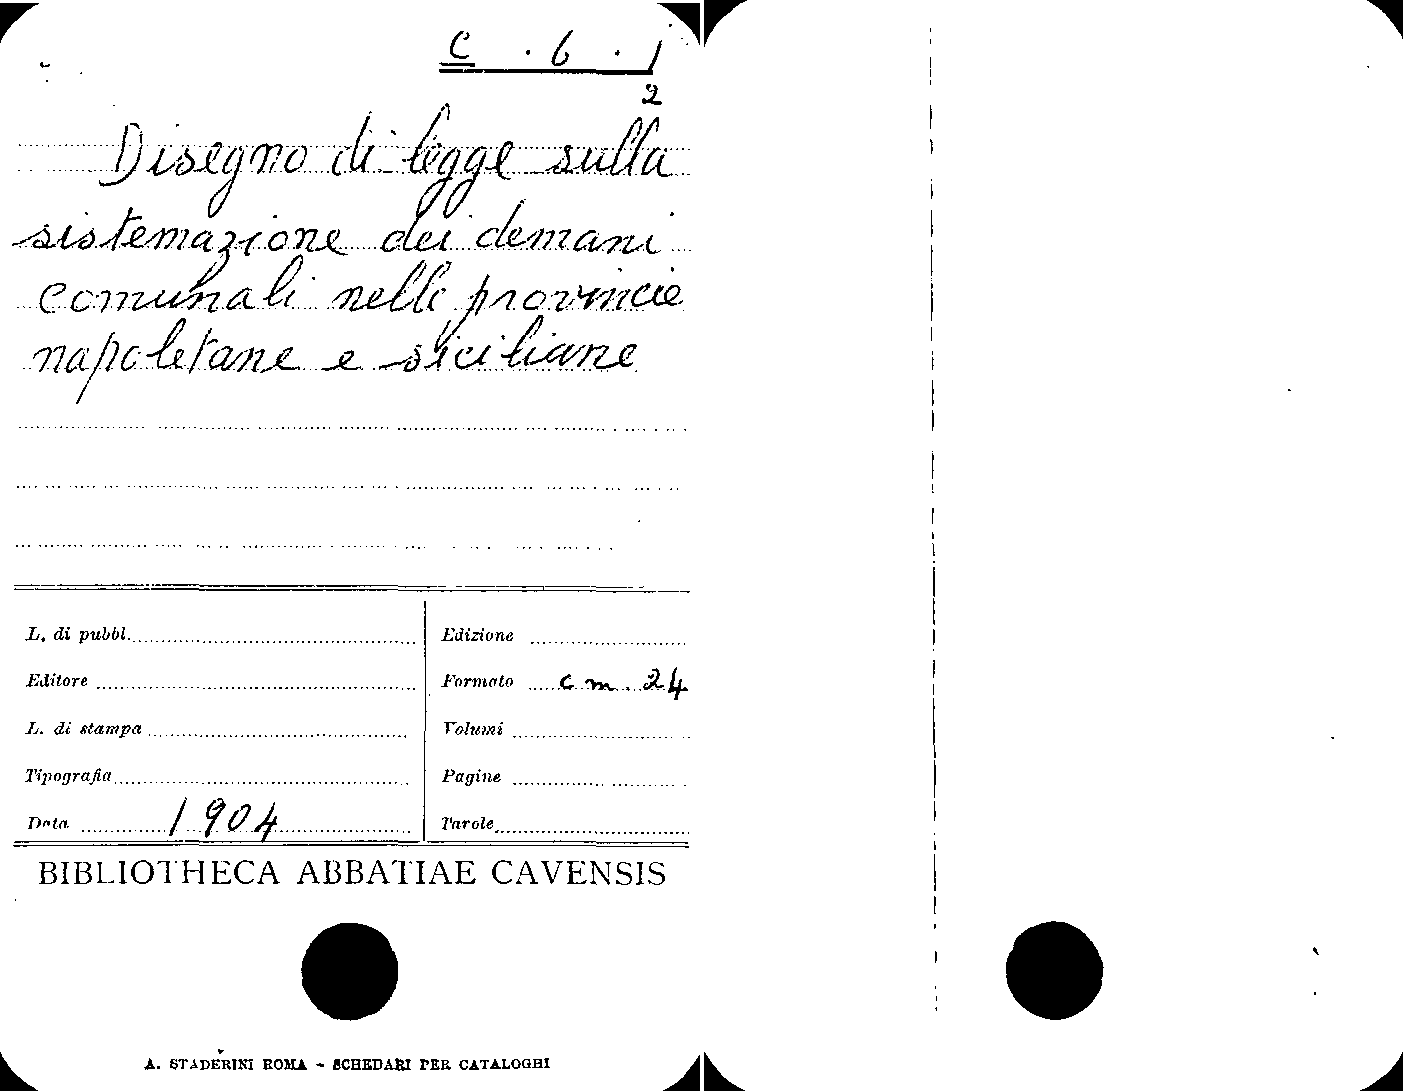 C . 6 . 1
2
Disegno di legge sulla
sistemazione dei demani
comunali nelle provincie
napoletane e siciliane
L. di pubbl.
Editore
L. di stampa
Tipografia
Data 1904
Edizione
Formato cm. 24
Volumi
Pagine
Parole
BIBLIOTHECA ABBATIAE CAVENSIS
A. STADERINI ROMA - SCHEDARI PER CATALOGHI